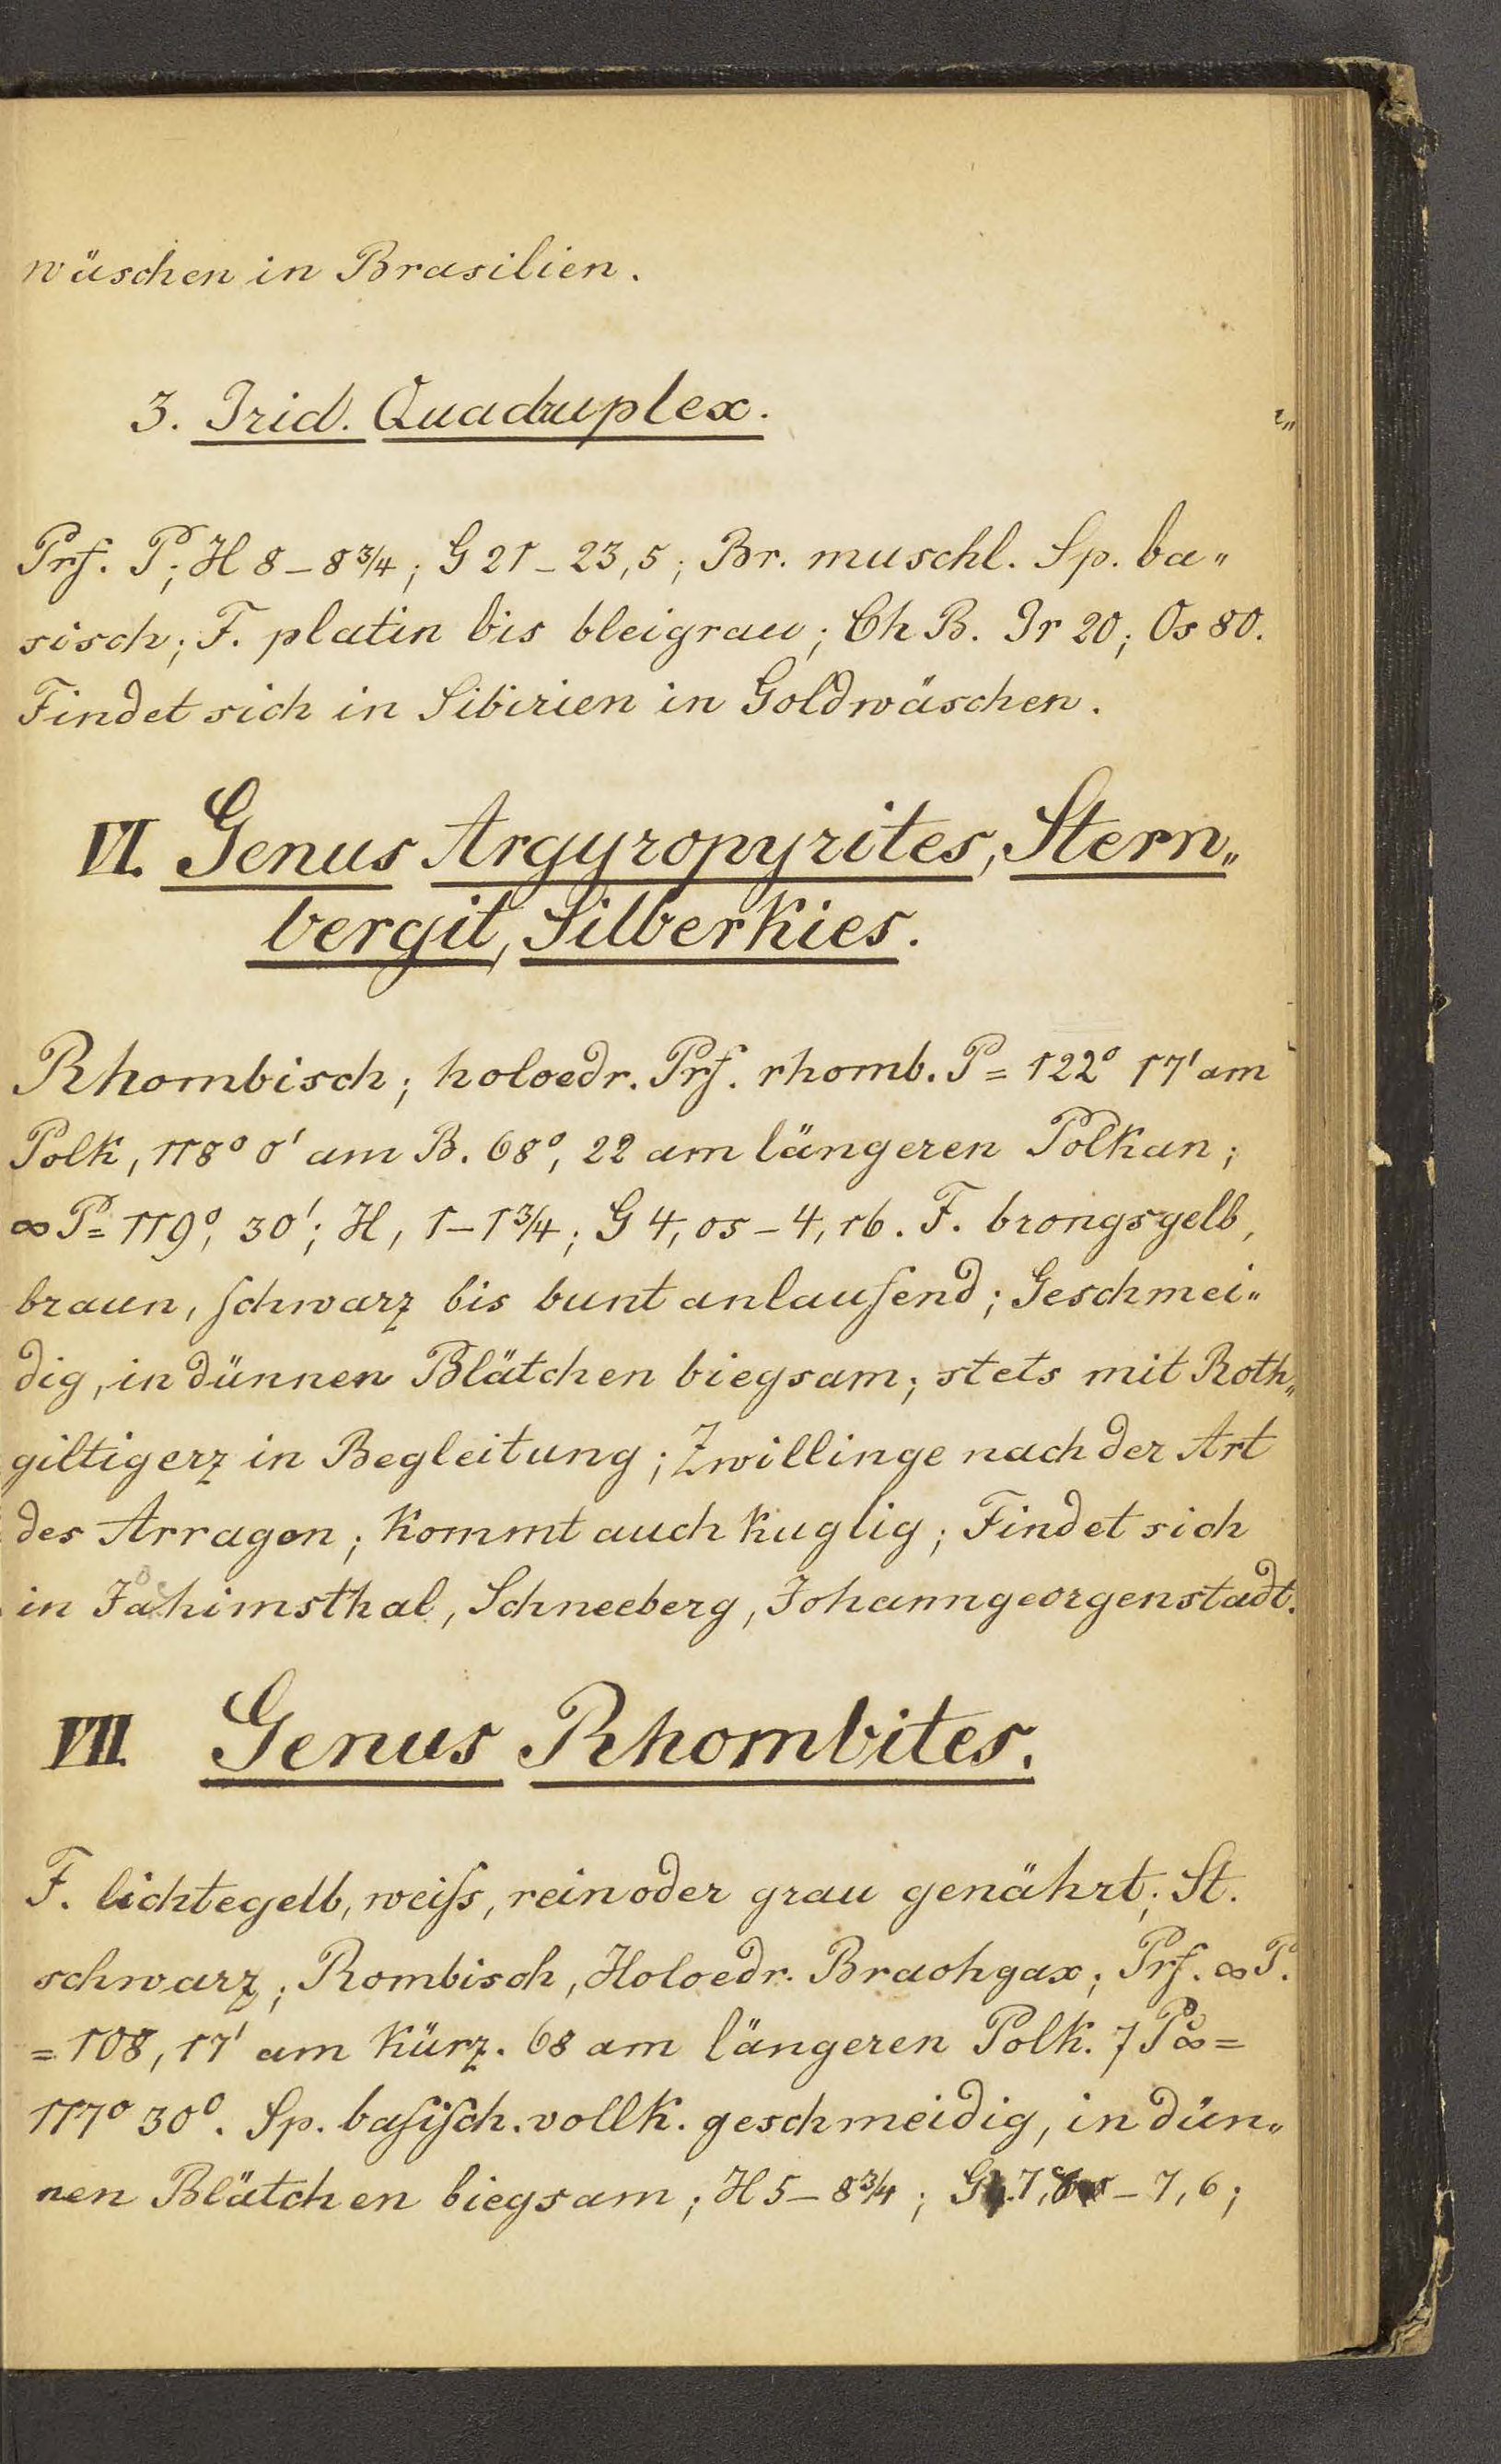 wäschen in Brasilien.
3. Irid. Quadruplex.
Prf. P; H 8–8¾; G 21–23,5; Br. muschl. Sp. ba„
sisch; F. platin bis bleigrau; Ch B. Ir 20; Os 80.
Findet sich in Sibirien in Goldwäschen.
VI. Genus Argyropyrites, Stern„
bergit, Silberkies.
Rhombisch; holoedr. Prf. rhomb. P = 122° 17' am
Polk, 118° 0' am B. 68°, 22 am längeren Polkan;
∞ P = 119°, 30'; H, 1–1¾; G 4,05–4,16. F. brongsgelb,
braun, ſchwarz bis bunt anlaufend; Geschmei„
dig, in dünnen Blätchen biegsam; stets mit Roth„
giltigerz in Begleitung; Zwillinge nach der Art
des Arragon; kommt auch kuglig; Findet sich
in Jahimsthal, Schneeberg, Johanngeorgenstadt.
VII. Genus Rhombites.
F. lichtegelb, weiſs, rein oder grau genährt; St.
schwarz; Rombisch, Holoedr. Brachgax; Prf. ∞ P.
= 108, 17' am kürz. 68 am längeren Polk. 7 P̆∞ =
117° 30°. Sp. baſiſch. vollk. geschmeidig, in dün„
nen Blätchen biegsam; H 5–8¾; G. 7, – 7,6;